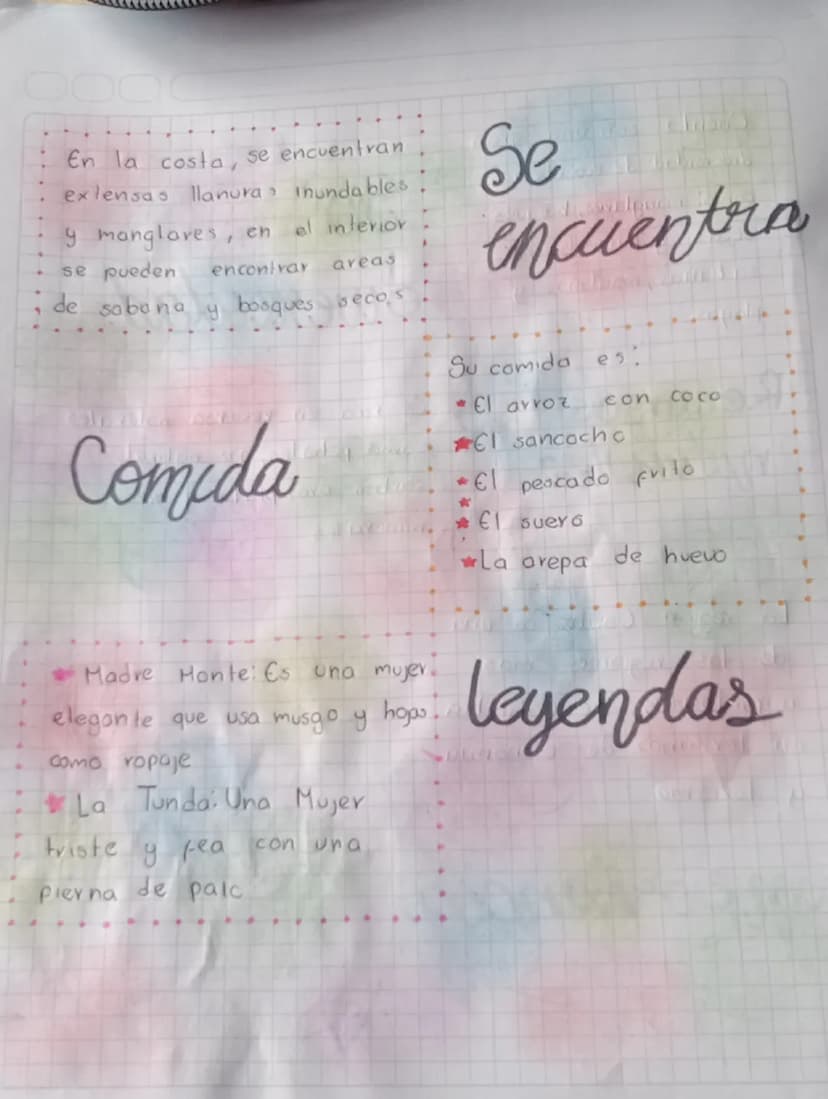 En la costa, se encuentran
extensas llanuras inundables
y manglares, en el interior
se pueden encontrar areas
de sabana y bosques secos
Se
encuentra
Comida
Su comida es:
El arroz con coco
El sancocho
El pescado frito
El suero
La arepa de huevo
leyendas
Madre Monte: Es una mujer
elegante que usa musgo y hojas
como ropaje
La Tunda: Una Mujer
triste y fea con una
pierna de palo